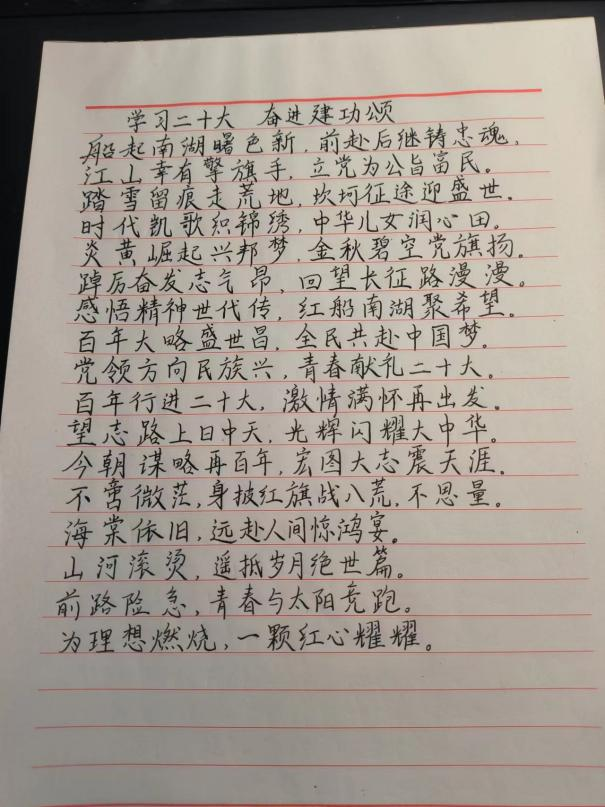 学习二十大 奋进建功颂
船起南湖曙色新，前赴后继铸忠魂，
江山幸有擎旗手，立党为公旨富民。
踏雪留痕走荒地，坎坷征途迎盛世。
时代凯歌织锦绣，中华儿女润心田。
炎黄崛起兴邦梦，金秋碧空党旗扬。
踔厉奋发志气昂，回望长征路漫漫。
感悟精神世代传，红船南湖聚希望。
百年大略盛世昌，全民共赴中国梦。
党领方向民族兴，青春献礼二十大。
百年行进二十大，激情满怀再出发。
望志路上日中天，光辉闪耀大中华。
今朝谋略再百年，宏图大志震天涯。
不啻微茫，身披红旗战八荒，不思量。
海棠依旧，远赴人间惊鸿宴。
山河滚烫，遥抵岁月绝世篇。
前路险急，青春与太阳竞跑。
为理想燃烧，一颗红心耀耀。